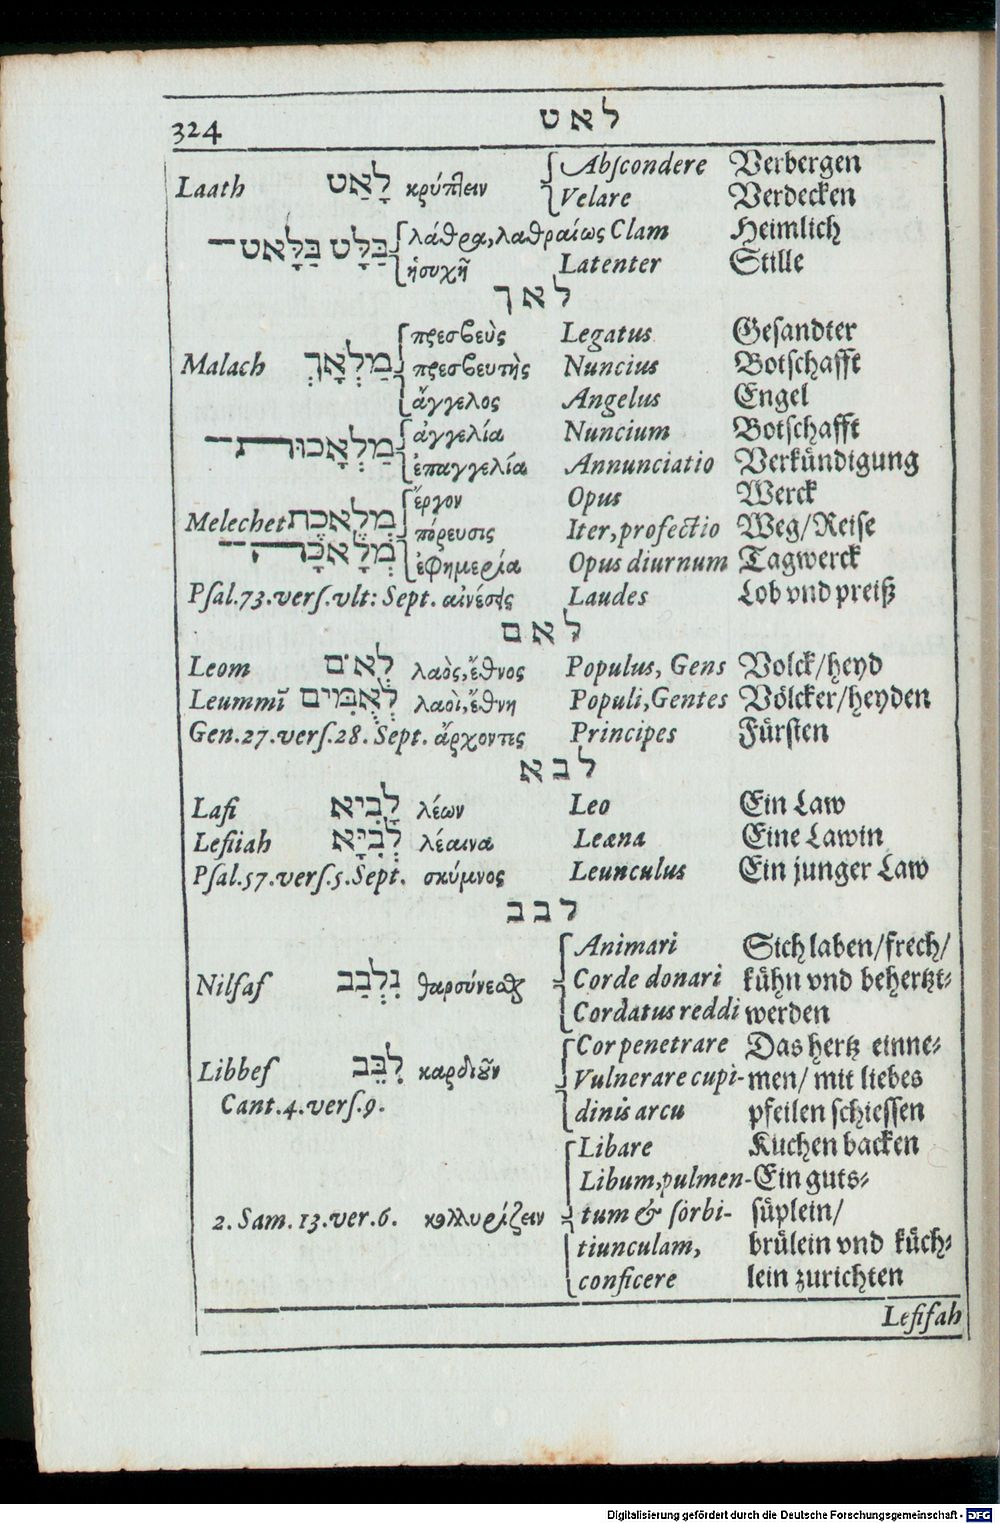 324 לאט
Laath לָאַט κρύπτειν Abscondere Verbergen
Velare Verdecken
בַּלָּט בַּלָּאט λάθρᾳ, λαθραίως Clam Heimlich
ἡσυχῆ Latenter Stille
לאך
πρεσβεὺς Legatus Gesandter
Malach מַלְאָךְ πρεσβευτὴς Nuncius Botschafft
ἄγγελος Angelus Engel
מַלְאָכוּת ἀγγελία Nuncium Botschafft
ἐπαγγελία Annunciatio Verkündigung
ἔργον Opus Werck
Melechet מְלֶאכֶת πόρευσις Iter, profectio Weg/Reise
מְלָאכָה ἐφημερία Opus diurnum Tagwerck
Psal.73.vers.vlt: Sept. αἰνέσεις Laudes Lob vnd preiß
לאם
Leom לְאֹים λαὸς, ἔθνος Populus, Gens Volck/heyd
Leummĩ לְאֻמִּים λαοὶ, ἔθνη Populi, Gentes Völcker/heyden
Gen.27.vers.28. Sept. ἄρχοντες Principes Fürsten
לבא
Lafi לָבִיא λέων Leo Ein Law
Lefiiah לְבִיָּא λέαινα Leæna Eine Lawin
Psal.57.vers.5.Sept. σκύμνος Leunculus Ein junger Law
לבב
Animari Sich laben/frech/
Nilfaf נִלְבַב θαρσύνεσθαι Corde donari kühn vnd behertzt-
Cordatus reddi werden
Cor penetrare Das hertz einne-
Libbef לִבֵּב καρδιοῦν Vulnerare cupi- men/ mit liebes
Cant.4.vers.9. dinis arcu pfeilen schiessen
Libare Kuchen backen
Libum, pulmen- Ein guts-
2. Sam. 13. ver. 6. κολλυρίζειν tum & sorbi- süplein/
tiunculam, brülein vnd küch-
conficere lein zurichten
Lefifah
Digitalisierung gefördert durch die Deutsche Forschungsgemeinschaft - DFG